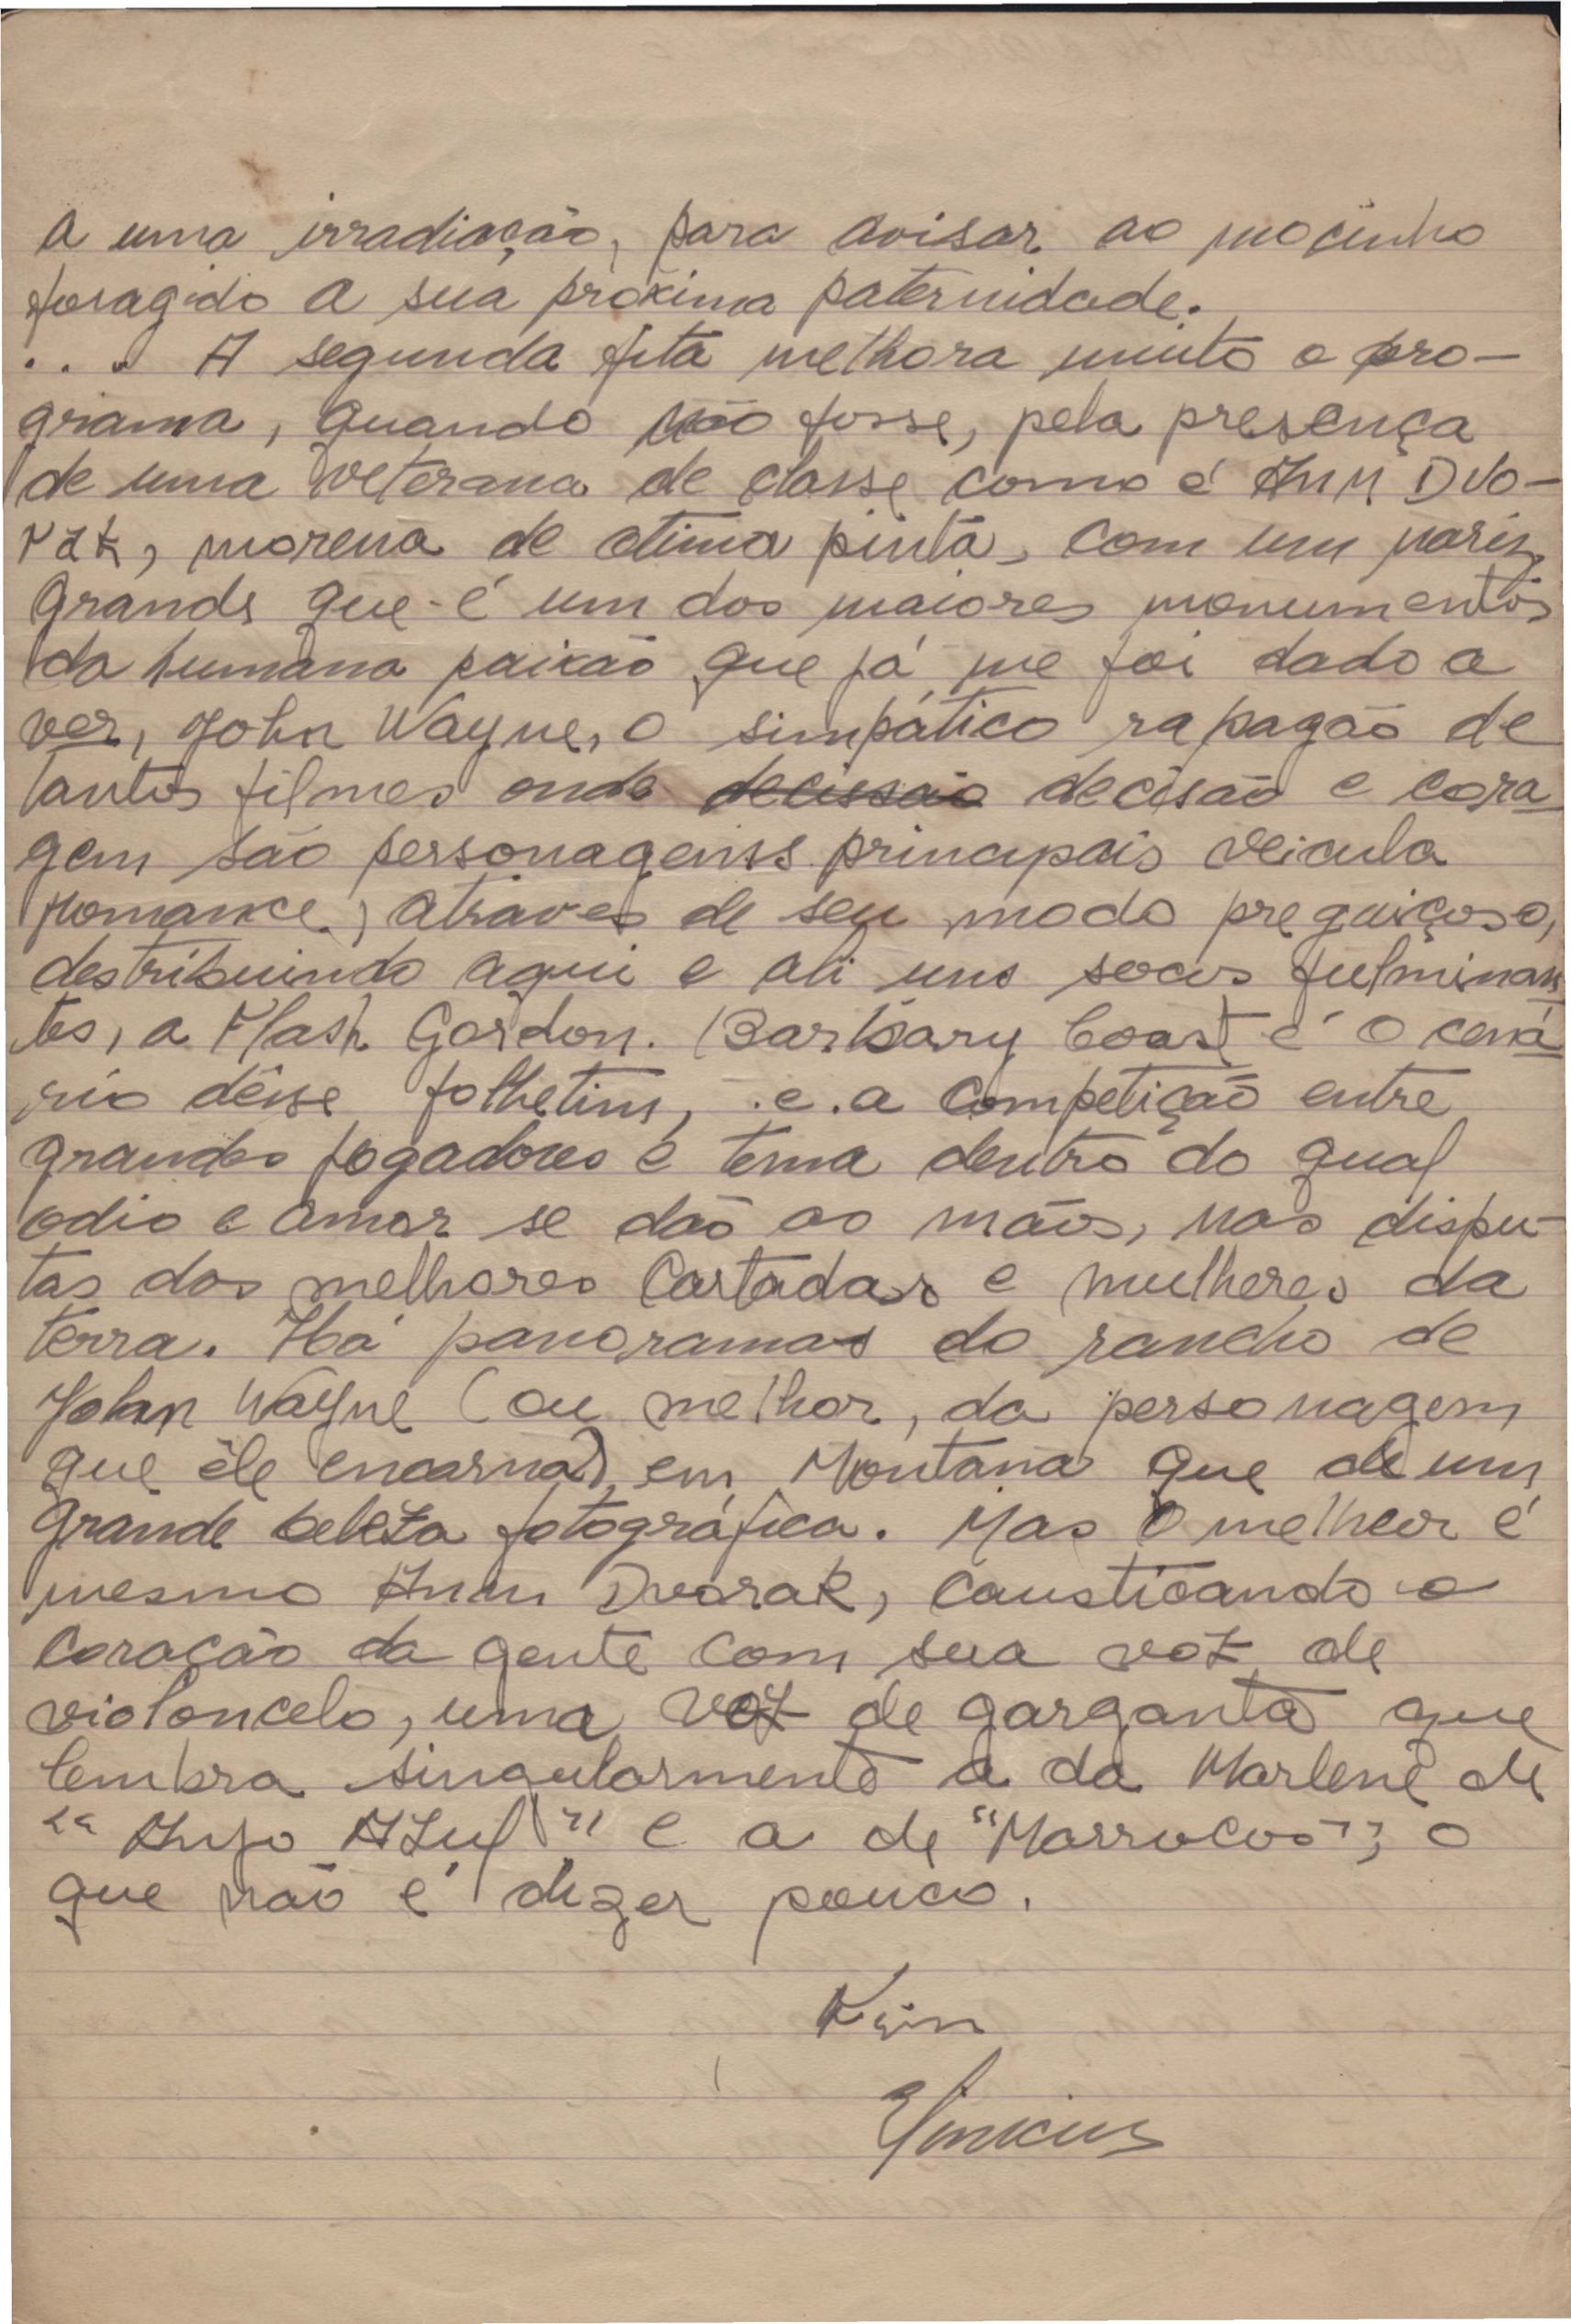 a uma irradiação, para avisar ao mocinho
foragido a sua próxima paternidade.
... A segunda fita melhora muito o pro-
grama, quando não fosse, pela presença
de uma veterana de classe como é Ann Dvo-
rak, morena de otima pinta, com um nariz
grande que é um dos maiores monumentos
da humana paixão que já me foi dado a
ver, John Wayne, o simpático rapagão de
tantos filmes onde decissão decisão e cora-
gem são personagens principais veicula
romance, atraves de seu modo preguiçoso,
destribuindo aqui e ali uns socos fulminan-
tes, a Flash Gordon. Barbary Coast é o cená-
rio dêsse folhetim, e a competição entre
grandes jogadores é tema dentro do qual
odio e amor se dão as mãos, nas dispu-
tas das melhores cartadas e mulheres da
terra. Há panoramas do rancho de
John Wayne (ou melhor, da personagem
que êle encarna) em Montana que de um
grande beleza fotográfica. Mas o melhor é
mesmo Ann Dvorak, causticando o
coração da gente com sua voz de
violoncelo, uma voz de garganta que
lembra singularmente a da Marlene de
"Anjo Azul" e a de "Marrocos"; o
que não é dizer pouco.